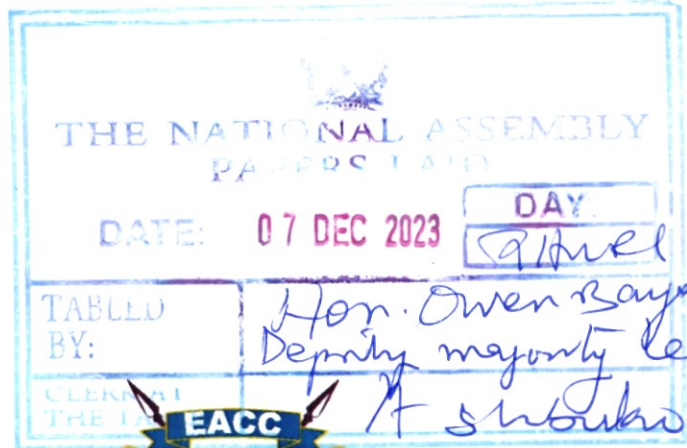 THE NATIONAL ASSEMBLY
PAPERS LAID
DATE: 07 DEC 2023
DAY
TABLED BY:
Hon. Owen Baya
Deputy majority Le
CLERK AT
THE TA
EACC